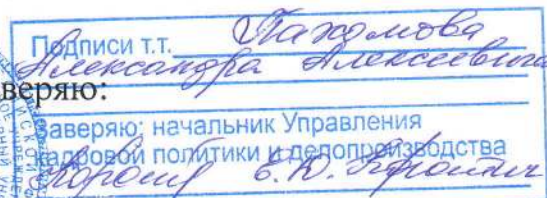 Подписи т.т. Пахомова
Александра Алексеевича
веряю:
Заверяю: начальник Управления
кадровой политики и делопроизводства